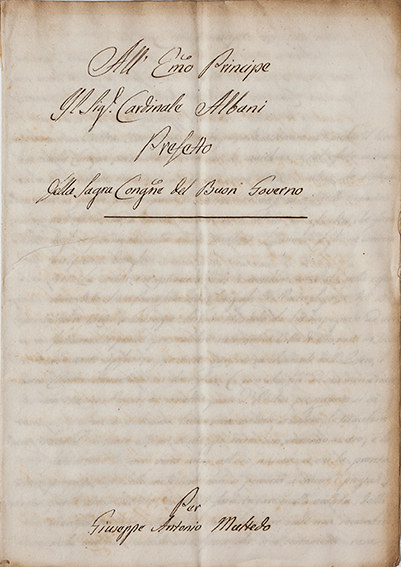 All' Emo Principe
Il Sigr. Cardinale Albani
Prefetto
Della Sagra Congne del Buon Governo
Per
Giuseppe Antonio